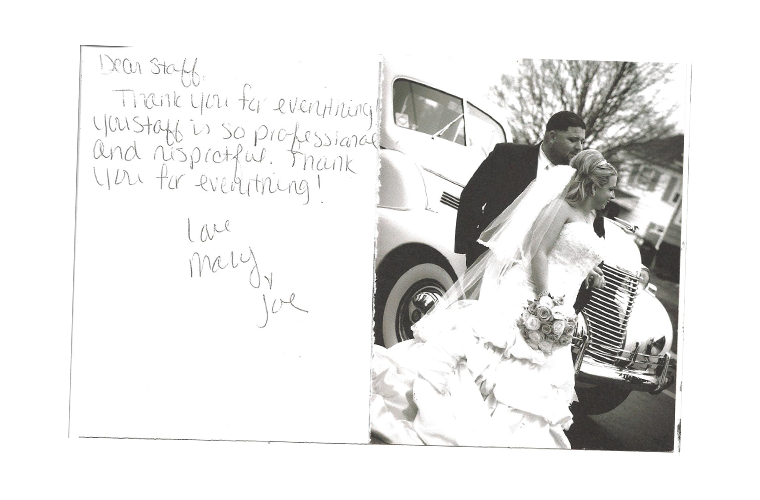 Dear Staff,
Thank you for everything
you staff is so professional
and respectful. Thank
you for everything!
Love
Mary
& Joe